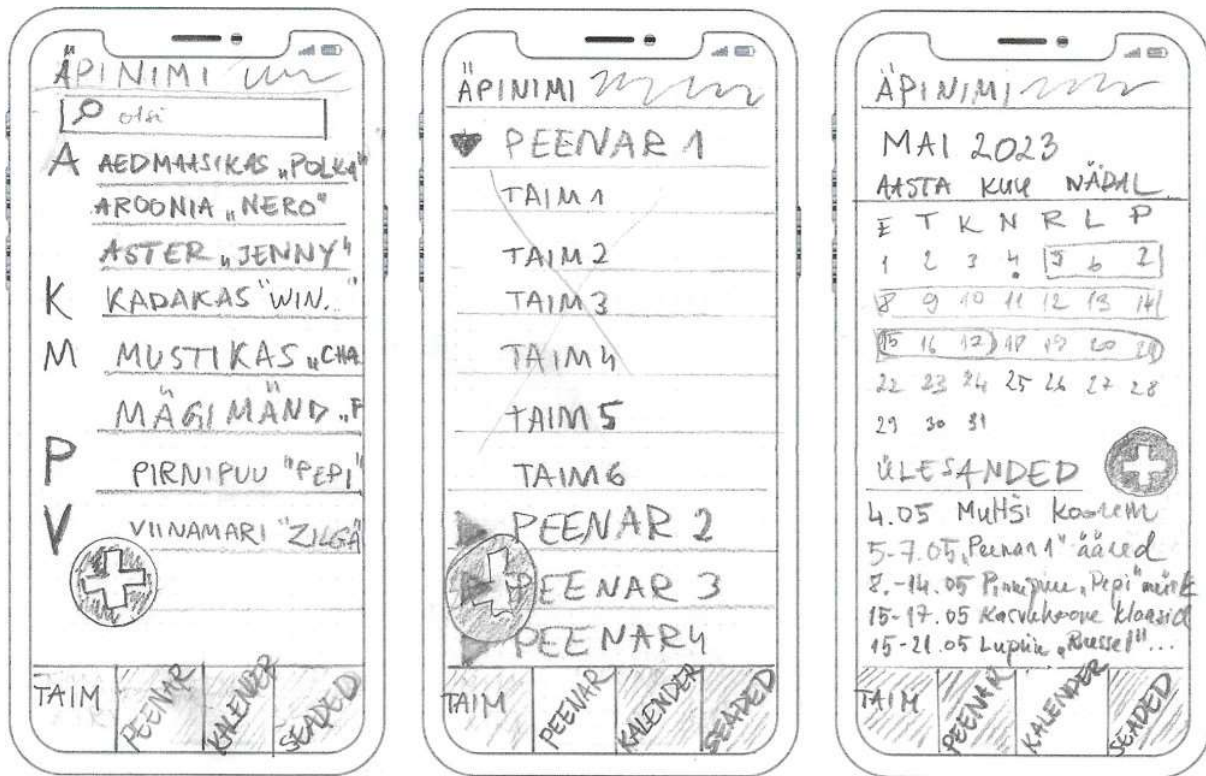 ÄPINIMI
otsi
A AEDMAASIKAS „POLKA"
AROONIA „NERO"
ASTER „JENNY"
K KADAKAS "WIN..
M MUSTIKAS „CHA
MÄGIMÄND „F
P PIRNIPUU "PEPI"
V VIINAMARI "ZILGA
TAIM PEENAR KALENDER SEADED
ÄPINIMI
PEENAR 1
TAIM 1
TAIM 2
TAIM 3
TAIM 4
TAIM 5
TAIM 6
PEENAR 2
PEENAR 3
PEENAR 4
TAIM PEENAR KALENDER SEADED
ÄPINIMI
MAI 2023
AASTA KUU NÄDAL
E T K N R L P
1 2 3 4 5 6 7
8 9 10 11 12 13 14
15 16 17 18 19 20 21
22 23 24 25 26 27 28
29 30 31
ÜLESANDED
4.05 Multši koorem
5-7.05 „Peenar 1" ääred
8.-14.05 Pirnipuu „Pepi"
15-17.05 Kasvuhoone klaasid
15-21.05 Lupiin „Russel"...
TAIM PEENAR KALENDER SEADED